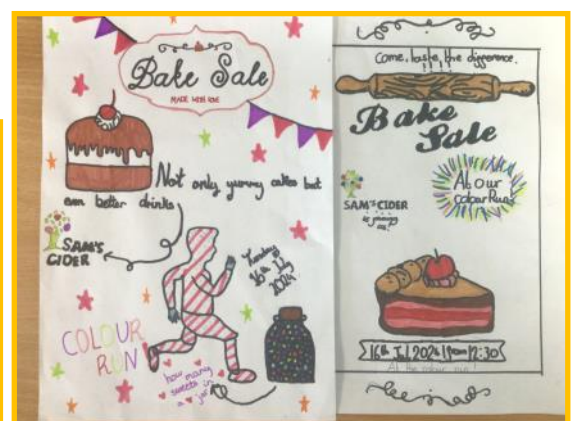 Bake Sale
MADE WITH LOVE
Not only yummy cakes but
even better drinks
SAM'S
CIDER
Tuesday
16th July
2024
COLOUR
RUN
how many
sweets in
a jar
Come, taste, the difference.
Bake
Sale
At Our
colour Run
SAM'S CIDER
is joining
us!
At the colour run!